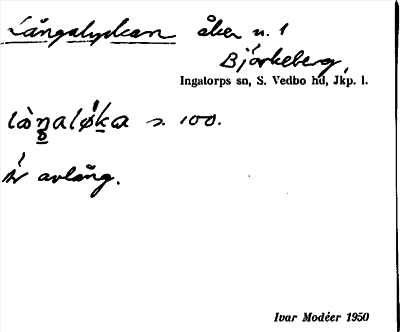 Långalyckan åker n. 1
Björkeberg,
Ingatorps sn, S. Vedbo hd, Jkp. l.
s. 100.
är avlång.
Ivar Modéer 1950